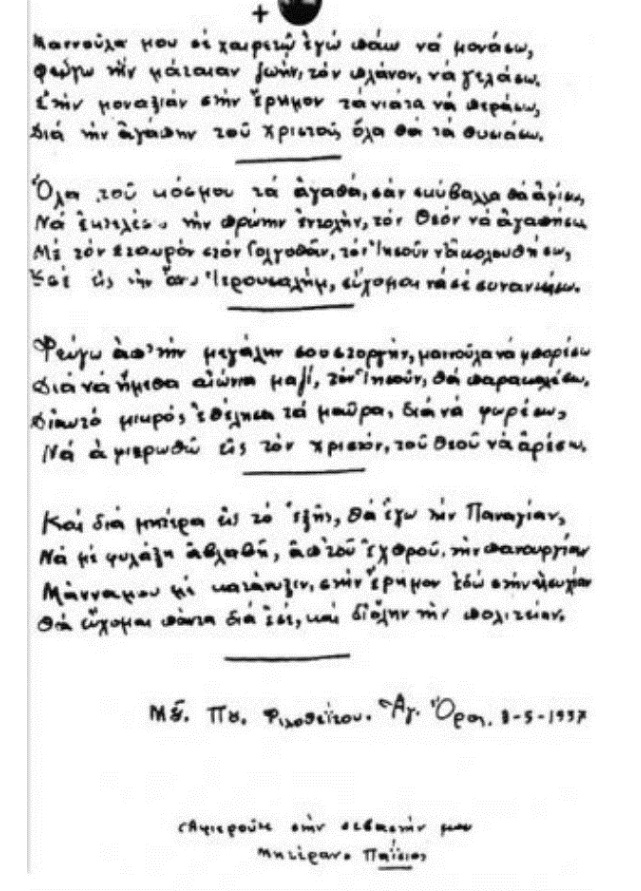 +
Μαννούλα μου σέ χαιρετῶ ἐγώ πάω νά μονάσω,
Φεύγω τήν μάταιαν ζωήν, τόν πλάνον, νά γελάσω.
Στήν μοναξιάν στήν ἔρημον τά νιάτα νά περάσω,
Διά τήν ἀγάπην τοῦ Χριστοῦ, ὅλα θά τά θυσιάσω.
Ὅλα τοῦ κόσμου τά ἀγαθά, σάν σκύβαλλα θά ἀφίσω,
Νά ἐκτελέσω τήν πρώτην ἐντολήν, τόν Θεόν νά ἀγαπήσω
Μέ τόν Σταυρόν στόν Γολγοθᾶν, τόν Ἰησοῦν νά ἀκολουθήσω,
Καί εἰς τήν ἄνω Ἱερουσαλήμ, εὔχομαι νά σέ συναντήσω.
Φεύγω ἀπ' τήν μεγάλην σου στοργήν, μαννούλα νά μπορέσω
Διά νά ἤμεθα αἰώνια μαζί, τόν Ἰησοῦν, θά παρακαλέσω.
Δι αὐτό μικρός, ἐθέλησα τά μαῦρα, διά νά φορέσω,
Νά ἀφιερωθῶ εἰς τόν Χριστόν, τοῦ Θεοῦ νά ἀρέσω.
Καί διά μητέρα εἰς τό ἑξῆς, θά ἔχω τήν Παναγίαν,
Νά μέ φυλάξη ἀβλαβῆ, ἀπ' τοῦ ἐχθροῦ, τήν πανουργίαν
Μάννα μου μέ κατάνυξιν, στήν ἔρημον ἐδῶ στήν ἡσυχίαν
Θά εὔχομαι πάντα διά ἐσέ, καί δι ὅλην τήν πολιτείαν.
Φιλοθεΐτου. Ἁγ. Ὄρος. 3-5-1957
Ἀφιεροῦτε στήν σεβαστήν μου
μητέραν. Παΐσιος